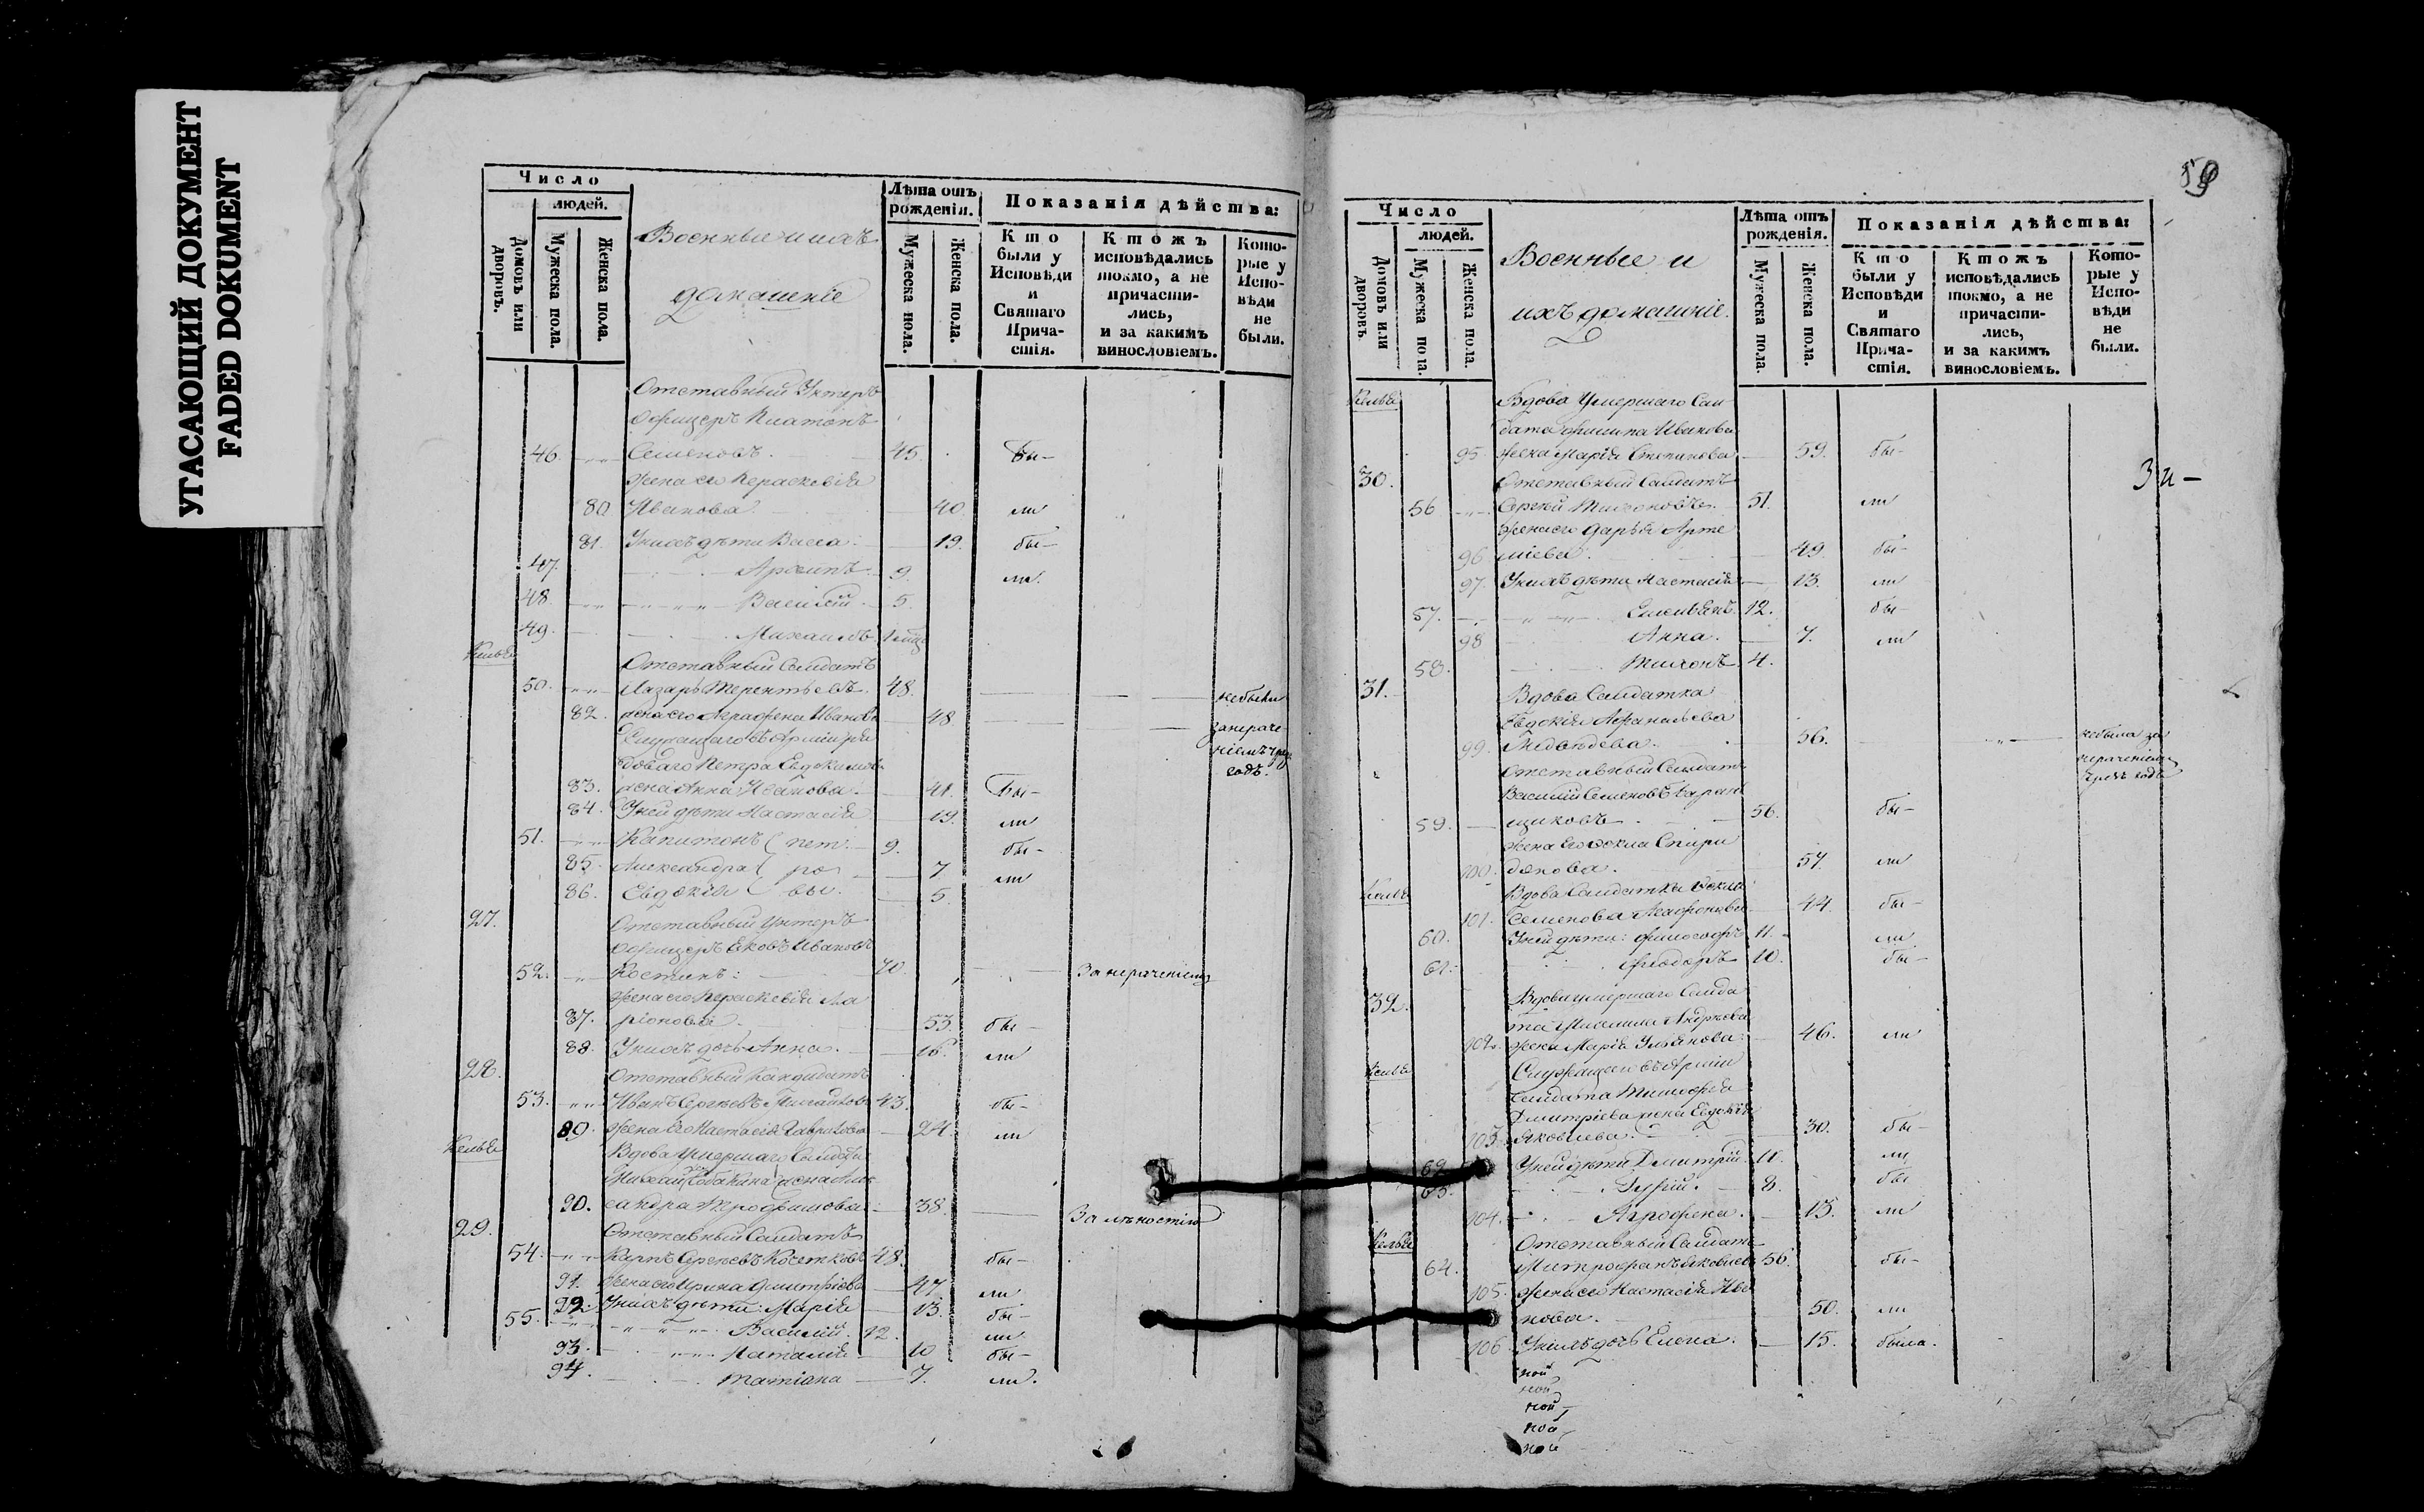 УГАСАЮЩИЙ ДОКУМЕНТ
FADED DOKUMENT
Число
людей.
Домовъ или дворовъ.
Мужеска пола.
Женска пола.
Военные и ихъ
домашніе
Лѣта отъ рожденія.
Мужеска пола.
Женска пола.
Показанія дѣйства:
Кто были у Исповѣди и Святаго Причастія.
Ктожъ исповѣдались токмо, а не причастились, и за какимъ винословіемъ.
Которые у Исповѣди не были.
Отставный Унтеръ
Офицеръ Платонъ
46. Семеновъ. 45. бы-
жена его Параскевія
80 Иванова. 40. ли
81. У нихъ дѣти Васса: 19. бы-
47. Архипъ 9. ли.
48. Василій. 5.
49. Михаилъ
Келья
Отставный Солдатъ
50. Лазарь Терентьевъ. 48. не были
82. жена его Аграфена Иванов 48 за нераче-
Служащаго въ Арміи ря ніемъ
доваго Петра Евдокимов годъ.
83. жена Анна Иванова. 41. бы-
84. У ней дѣти Настасія 19. ли
51. Капитонъ Пет 9. бы-
85. Александра ро 7 ли
86. Евдокія вы. 5.
27. Отставный Унтеръ
Офицеръ Яковъ Ивановъ
52. Костинъ: 70. За нераченіемъ
жена его Параскевія Ла
87. ріонова. 53. бы-
88. У нихъ дочь Анна. 16. ли
28. Отставный
53. Иванъ Сергѣевъ 43. бы-
89. жена его Настасія Гаврилова 24. ли
Келья Вдова умершаго Солдата
жена Алек
90. сандра Трофимова. 38. За лѣностію
29. Отставный Солдатъ
54. Карпъ Сергѣевъ Кочетковъ 48. бы-
91. жена его Ирина Дмитріева 47 ли
92. У нихъ дѣти: Марія 13. бы-
55. Василій. 12. ли
93. Наталія 10 бы-
94. Татіана 7. ли.
59
Число
людей.
Домовъ или дворовъ.
Мужеска пола.
Женска пола.
Военные и
ихъ домашніе.
Лѣта отъ рожденія.
Мужеска пола.
Женска пола.
Показанія дѣйства:
Кто были у Исповѣди и Святаго Причастія.
Ктожъ исповѣдались токмо, а не причастились, и за какимъ винословіемъ.
Которые у Исповѣди не были.
Келья Вдова умершаго Сол
дата Филипа Иванова
95. жена Марія Степанова 59. бы-
30. Отставный Солдатъ
56 Сергѣй Тихоновъ. 51. ли
жена его Дарья Арте
96 міева. 49. бы-
97. У нихъ дѣти Настасія 13. ли
57. Емельянъ. 12. бы-
98 Анна. 7. ли
58. Тихонъ. 4.
31. Вдова Солдатка
Евдокія Афанасьева
99. Медвѣдева. 56. не была за
Отставный Солдатъ нераченіемъ
Василій Семеновъ годъ
59. щиковъ. 56. бы-
жена его Фекла Спири
100. донова. 57. ли
Келья Вдова Солдатка Фекла
101. Семенова 44. бы-
60. У ней дѣти: 11. ли
61. Ѳеодоръ 10. бы-
32. Вдова умершаго Солда
та Андреева
102. жена Марія Ульянова: 46. ли
Келья Служащаго въ Арміи
Солдата Тимофея
Дмитріева жена Евдокія
103. Яковлева. 30. бы-
62 У ней дѣти Дмитрій 11. ли
63. 8. бы
104. Аграфена. 13. ли
Келья Отставный Солдатъ
64. Митрофанъ Яковлев 56. бы-
105. жена его Настасія Ива
нова. 50. ли
106. У нихъ дочь Елена. 15. была.
ной
ной
ной
ной
ной